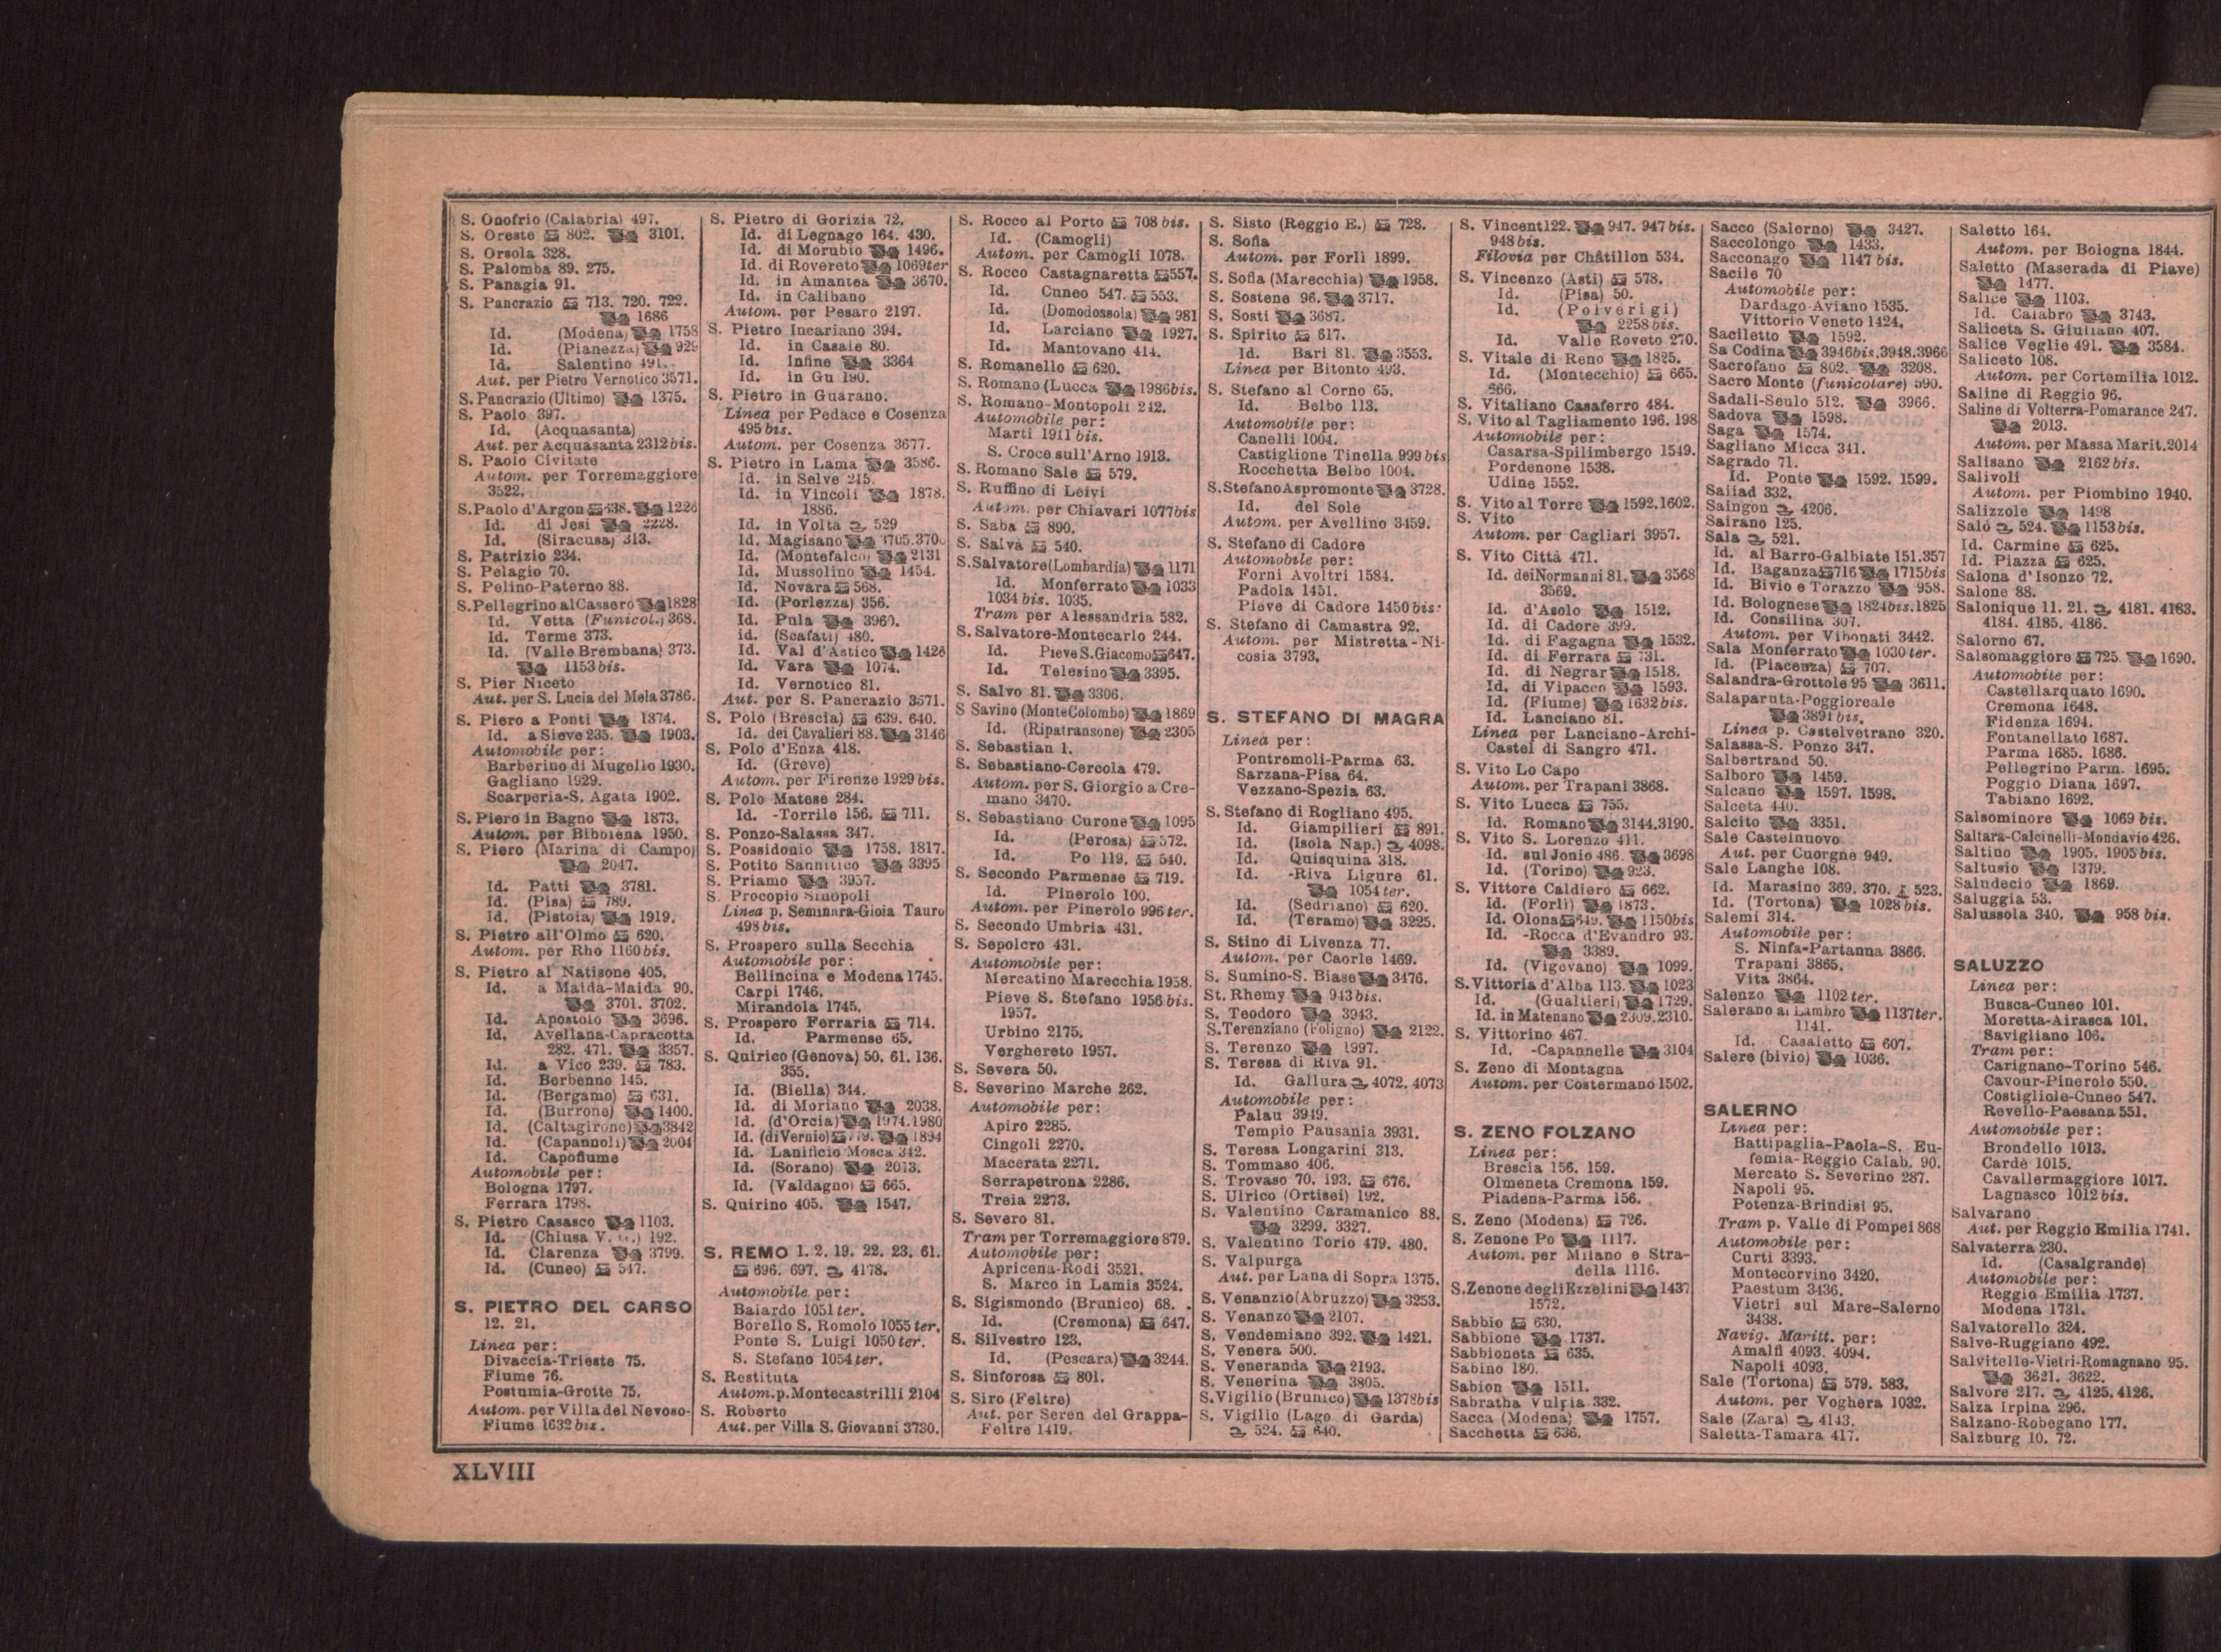 S. Onofrio (Calabria) 497.
S. Oreste 802. 3101.
S. Orsola 328.
S. Palomba 89. 275.
S. Panagia 91.
S. Pancrazio 713. 720. 722.
1686
Id. (Modena) 1758
Id. (Pianezza) 929
Id. Salentino 491.
Aut. per Pietro Vernotico 3571.
S. Pancrazio (Ultimo) 1375.
S. Paolo 397.
Id. (Acquasanta)
Aut. per Acquasanta 2312 bis.
S. Paolo Civitate
Autom. per Torremaggiore
3522.
S. Paolo d'Argon 638. 1226
Id. di Jesi 2228.
Id. (Siracusa) 313.
S. Patrizio 234.
S. Pelagio 70.
S. Pelino-Paterno 88.
S. Pellegrino al Cassero 1828
Id. Vetta (Funicol.) 368.
Id. Terme 373.
Id. (Valle Brembana) 373.
1153 bis.
S. Pier Niceto
Aut. per S. Lucia del Mela 3786.
S. Piero a Ponti 1874.
Id. a Sieve 235. 1903.
Automobile per:
Barberino di Mugello 1930.
Gagliano 1929.
Scarperia-S. Agata 1902.
S. Piero in Bagno 1873.
Autom. per Bibbiena 1950.
S. Piero (Marina di Campo)
2047.
Id. Patti 3781.
Id. (Pisa) 789.
Id. (Pistoia) 1919.
S. Pietro all'Olmo 620.
Autom. per Rho 1160 bis.
S. Pietro al Natisone 405.
Id. a Maida-Maida 90.
3701. 3702.
Id. Apostolo 3696.
Id. Avellana-Capracotta
282. 471. 3357.
Id. a Vico 239. 783.
Id. Berbenno 145.
Id. (Bergamo) 631.
Id. (Burrone) 1400.
Id. (Caltagirone) 3842
Id. (Capannoli) 2004
Id. Capofiume
Automobile per:
Bologna 1797.
Ferrara 1798.
S. Pietro Casasco 1103.
Id. (Chiusa V. 192.
Id. Clarenza 3799.
Id. (Cuneo) 547.
S. PIETRO DEL CARSO
12. 21.
Linea per:
Divaccia-Trieste 75.
Fiume 76.
Postumia-Grotte 75.
Autom. per Villa del Nevoso-
Fiume 1632 bis.
S. Pietro di Gorizia 72.
Id. di Legnago 164. 430.
Id. di Morubio 1496.
Id. di Rovereto 1069 ter
Id. in Amantea 3670.
Id. in Calibano
Autom. per Pesaro 2197.
S. Pietro Incariano 394.
Id. in Casale 80.
Id. Infine 3364
Id. in Gu 190.
S. Pietro in Guarano.
Linea per Pedace e Cosenza
495 bis.
Autom. per Cosenza 3677.
S. Pietro in Lama 3586.
Id. in Selve 245.
Id. in Vincoli 1878.
1886.
Id. in Volta 529
Id. Magisano 3705.
Id. (Montefalco) 2131
Id. Mussolino 1454.
Id. Novara 568.
Id. (Porlezza) 356.
Id. Pula 3960.
id. (Scafati) 480.
Id. Val d'Astico 1426
Id. Vara 1074.
Id. Vernotico 81.
Aut. per S. Pancrazio 3571.
S. Polo (Brescia) 639. 640.
Id. dei Cavalieri 88. 3146
S. Polo d'Enza 418.
Id. (Greve)
Autom. per Firenze 1929 bis.
S. Polo Matese 284.
Id. -Torrile 156. 711.
S. Ponzo-Salassa 347.
S. Possidonio 1758. 1817.
S. Potito Sannitico 3395
S. Priamo 3957.
S. Procopio Sinopoli
Linea p. Seminara-Gioia Tauro
498 bis.
S. Prospero sulla Secchia
Automobile per:
Bellincina e Modena 1745.
Carpi 1746.
Mirandola 1745.
S. Prospero Ferraria 714.
Id. Parmense 65.
S. Quirico (Genova) 50. 61. 136.
355.
Id. (Biella) 344.
Id. di Moriano 2038.
Id. (d'Orcia) 1974. 1980
Id. (di Vernio) 779. 1894
Id. Lanificio Mosca 342.
Id. (Sorano) 2013.
Id. (Valdagno) 665.
S. Quirino 405. 1547.
S. REMO 1. 2. 19. 22. 23. 61.
696. 697. 4178.
Automobile per:
Baiardo 1051 ter.
Borello S. Romolo 1055 ter.
Ponte S. Luigi 1050 ter.
S. Stefano 1054 ter.
S. Restituta
Autom. p. Montecastrilli 2104
S. Roberto
Aut. per Villa S. Giovanni 3730.
S. Rocco al Porto 708 bis.
Id. (Camogli)
Autom. per Camogli 1078.
S. Rocco Castagnaretta 557.
Id. Cuneo 547. 553.
Id. (Domodossola) 981
Id. Larciano 1927.
Id. Mantovano 414.
S. Romanello 620.
S. Romano (Lucca 1986 bis.
S. Romano-Montopoli 242.
Automobile per:
Marti 1911 bis.
S. Croce sull'Arno 1913.
S. Romano Sale 579.
S. Ruffino di Leivi
Autom. per Chiavari 1077 bis
S. Saba 890.
S. Salvà 540.
S. Salvatore (Lombardia) 1171
Id. Monferrato 1033
1034 bis. 1035.
Tram per Alessandria 582.
S. Salvatore-Montecarlo 244.
Id. Pieve S. Giacomo 647.
Id. Telesino 3395.
S. Salvo 81. 3306.
S Savino (Monte Colombo) 1869
Id. (Ripatransone) 2305
S. Sebastian 1.
S. Sebastiano-Cercola 479.
Autom. per S. Giorgio a Cre-
mano 3470.
S. Sebastiano Curone 1095
Id. (Perosa) 572.
Id. Po 119. 540.
S. Secondo Parmense 719.
Id. Pinerolo 100.
Autom. per Pinerolo 996 ter.
S. Secondo Umbria 431.
S. Sepolcro 431.
Automobile per:
Mercatino Marecchia 1958.
Pieve S. Stefano 1956 bis.
1957.
Urbino 2175.
Verghereto 1957.
S. Severa 50.
S. Severino Marche 262.
Automobile per:
Apiro 2285.
Cingoli 2270.
Macerata 2271.
Serrapetrona 2286.
Treia 2273.
S. Severo 81.
Tram per Torremaggiore 879.
Automobile per:
Apricena-Rodi 3521.
S. Marco in Lamis 3524.
S. Sigismondo (Brunico) 68.
Id. (Cremona) 647.
S. Silvestro 123.
Id. (Pescara) 3244.
S. Sinforosa 801.
S. Siro (Feltre)
Aut. per Seren del Grappa-
Feltre 1419.
S. Sisto (Reggio E.) 728.
S. Sofia
Autom. per Forlì 1899.
S. Sofia (Marecchia) 1958.
S. Sostene 96. 3717.
S. Sosti 3687.
S. Spirito 617.
Id. Bari 81. 3553.
Linea per Bitonto 493.
S. Stefano al Corno 65.
Id. Belbo 113.
Automobile per:
Canelli 1004.
Castiglione Tinella 999 bis
Rocchetta Belbo 1004.
S. Stefano Aspromonte 3728.
Id. del Sole
Autom. per Avellino 3459.
S. Stefano di Cadore
Automobile per:
Forni Avoltri 1584.
Padola 1451.
Pieve di Cadore 1450 bis.
S. Stefano di Camastra 92.
Autom. per Mistretta-Ni-
cosia 3793.
S. STEFANO DI MAGRA
Linea per:
Pontremoli-Parma 63.
Sarzana-Pisa 64.
Vezzano-Spezia 63.
S. Stefano di Rogliano 495.
Id. Giampilieri 891.
Id. (Isola Nap.) 4098.
Id. Quisquina 318.
Id. -Riva Ligure 61.
1054 ter.
Id. (Sedriano) 620.
Id. (Teramo) 3225.
S. Stino di Livenza 77.
Autom. per Caorle 1469.
S. Sumino-S. Biase 3476.
St. Rhemy 943 bis.
S. Teodoro 3943.
S. Terenziano (Foligno) 2122.
S. Terenzo 1997.
S. Teresa di Riva 91.
Id. Gallura 4072. 4073
Automobile per:
Palau 3949.
Tempio Pausania 3931.
S. Teresa Longarini 313.
S. Tommaso 406.
S. Trovaso 70. 193. 676.
S. Ulrico (Ortisei) 192.
S. Valentino Caramanico 88.
3299. 3327.
S. Valentino Torio 479. 480.
S. Valpurga
Aut. per Lana di Sopra 1375.
S. Venanzio (Abruzzo) 3253.
S. Venanzo 2107.
S. Vendemiano 392. 1421.
S. Venera 500.
S. Veneranda 2193.
S. Venerina 3805.
S. Vigilio (Brunico) 1378 bis
S. Vigilio (Lago di Garda)
524. 640.
S. Vincent 122. 947. 947 bis.
948 bis.
Filovia per Châtillon 534.
S. Vincenzo (Asti) 578.
Id. (Pisa) 50.
Id. (Polverigi)
2258 bis.
Id. Valle Roveto 270.
S. Vitale di Reno 1825.
Id. (Montecchio) 665.
666.
S. Vitaliano Casaferro 484.
S. Vito al Tagliamento 196. 198
Automobile per:
Casarsa-Spilimbergo 1549.
Pordenone 1538.
Udine 1552.
S. Vito al Torre 1592. 1602.
S. Vito
Autom. per Cagliari 3957.
S. Vito Città 471.
Id. dei Normanni 81. 3568
3569.
Id. d'Asolo 1512.
Id. di Cadore 399.
Id. di Fagagna 1532.
Id. di Ferrara 731.
Id. di Negrar 1518.
Id. di Vipacco 1593.
Id. (Fiume) 1632 bis.
Id. Lanciano 81.
Linea per Lanciano-Archi-
Castel di Sangro 471.
S. Vito Lo Capo
Autom. per Trapani 3868.
S. Vito Lucca 755.
Id. Romano 3144, 3190.
S. Vito S. Lorenzo 411.
Id. sul Jonio 486. 3698
Id. (Torino) 923.
S. Vittore Caldiero 662.
Id. (Forlì) 1873.
Id. Olona 649. 1150 bis
Id. -Rocca d'Evandro 93.
3389.
Id. (Vigevano) 1099.
S. Vittoria d'Alba 113. 1023
Id. (Gualtieri) 1729.
Id. in Matenano 2309. 2310.
S. Vittorino 467.
Id. -Capannelle 3104
S. Zeno di Montagna
Autom. per Costermano 1502.
S. ZENO FOLZANO
Linea per:
Brescia 156. 159.
Olmeneta Cremona 159.
Piadena-Parma 156.
S. Zeno (Modena) 726.
S. Zenone Po 1117.
Autom. per Milano e Stra-
della 1116.
S. Zenone degli Ezzelini 1437
1572.
Sabbio 630.
Sabbione 1737.
Sabbioneta 635.
Sabino 180.
Sabion 1511.
Sabratha Vulpia 332.
Sacca (Modena) 1757.
Sacchetta 636.
Sacco (Salerno) 3427.
Saccolongo 1433.
Sacconago 1147 bis.
Sacile 70
Automobile per:
Dardago-Aviano 1535.
Vittorio Veneto 1424.
Saciletto 1592.
Sa Codina 3946 bis. 3948. 3966
Sacrofano 802. 3208.
Sacro Monte (funicolare) 590.
Sadali-Seulo 512. 3966.
Sadova 1598.
Saga 1574.
Sagliano Micca 341.
Sagrado 71.
Id. Ponte 1592. 1599.
Saiiad 332.
Saingon 4206.
Sairano 125.
Sala 521.
Id. al Barro-Galbiate 151. 357
Id. Baganza 716 1715 bis
Id. Bivio e Torazzo 958.
Id. Bolognese 1824 bis. 1825
Id. Consilina 307.
Autom. per Vibonati 3442.
Sala Monferrato 1030 ter.
Id. (Piacenza) 707.
Salandra-Grottole 95 3611.
Salaparuta-Poggioreale
3891 bis.
Linea p. Castelvetrano 320.
Salassa-S. Ponzo 347.
Salbertrand 50.
Salboro 1459.
Salcano 1597. 1598.
Salceta 440.
Salcito 3351.
Sale Castelnuovo
Aut. per Cuorgnè 949.
Sale Langhe 108.
Id. Marasino 369. 370. 523.
Id. (Tortona) 1028 bis.
Salemi 314.
Automobile per:
S. Ninfa-Partanna 3866.
Trapani 3865.
Vita 3864.
Salenzo 1102 ter.
Salerano al Lambro 1137 ter.
1141.
Id. Casaletto 607.
Salere (bivio) 1036.
SALERNO
Linea per:
Battipaglia-Paola-S. Eu-
femia-Reggio Calab. 90.
Mercato S. Severino 287.
Napoli 95.
Potenza-Brindisi 95.
Tram p. Valle di Pompei 868
Automobile per:
Curti 3393.
Montecorvino 3420.
Paestum 3436.
Vietri sul Mare-Salerno
3438.
Navig. Maritt. per:
Amalfi 4093. 4094.
Napoli 4093.
Sale (Tortona) 579. 583.
Autom. per Voghera 1032.
Sale (Zara) 4143.
Saletta-Tamara 417.
Saletto 164.
Autom. per Bologna 1844.
Saletto (Maserada di Piave)
1477.
Salice 1103.
Id. Calabro 3743.
Saliceta S. Giuliano 407.
Salice Veglie 491. 3584.
Saliceto 108.
Autom. per Cortemilia 1012.
Saline di Reggio 96.
Saline di Volterra-Pomarance 247.
2013.
Autom. per Massa Marit. 2014
Salisano 2162 bis.
Salivoli
Autom. per Piombino 1940.
Salizzole 1498
Salò 524. 1153 bis.
Id. Carmine 625.
Id. Piazza 625.
Salona d'Isonzo 72.
Salone 88.
Salonique 11. 21. 4181. 4183.
4184. 4185. 4186.
Salorno 67.
Salsomaggiore 725. 1690.
Automobile per:
Castellarquato 1690.
Cremona 1648.
Fidenza 1694.
Fontanellato 1687.
Parma 1685. 1686.
Pellegrino Parm. 1695.
Poggio Diana 1697.
Tabiano 1692.
Salsominore 1069 bis.
Saltara-Calcinelli-Mondavio 426.
Saltino 1905. 1905 bis.
Saltusio 1379.
Saludecio 1869.
Saluggia 53.
Salussola 340. 958 bis.
SALUZZO
Linea per:
Busca-Cuneo 101.
Moretta-Airasca 101.
Savigliano 106.
Tram per:
Carignano-Torino 546.
Cavour-Pinerolo 550.
Costigliole-Cuneo 547.
Revello-Paesana 551.
Automobile per:
Brondello 1013.
Cardè 1015.
Cavallermaggiore 1017.
Lagnasco 1012 bis.
Salvarano
Aut. per Reggio Emilia 1741.
Salvaterra 230.
Id. (Casalgrande)
Automobile per:
Reggio Emilia 1737.
Modena 1731.
Salvatorello 324.
Salve-Ruggiano 492.
Salvitelle-Vietri-Romagnano 95.
3621. 3622.
Salvore 217. 4125. 4126.
Salza Irpina 296.
Salzano-Robegano 177.
Salzburg 10. 72.
XLVIII